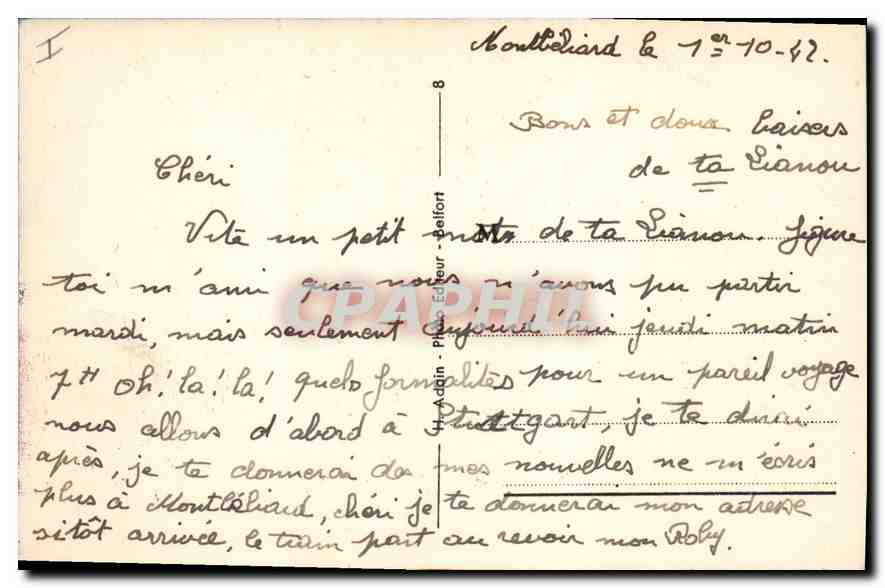 I
Montbéliard le 1er-10-42.
Bons et doux baisers
de ta Lianou
Chéri
Vite un petit mot de ta Lianou. figure
toi m'ami que nous n'avons pu partir
mardi, mais seulement aujourd'hui jeudi matin
7H Oh! la! la! quels formalités pour un pareil voyage
nous allons d'abord à Stuttgart, je te dirai
après, je te donnerai des mes nouvelles ne m'écris
plus à Montbéliard, chéri je te donnerai mon adresse
sitôt arrivée, le train part au revoir mon Roby.
H. Adain - Photo Editeur - Belfort
8
M
CPARHIL